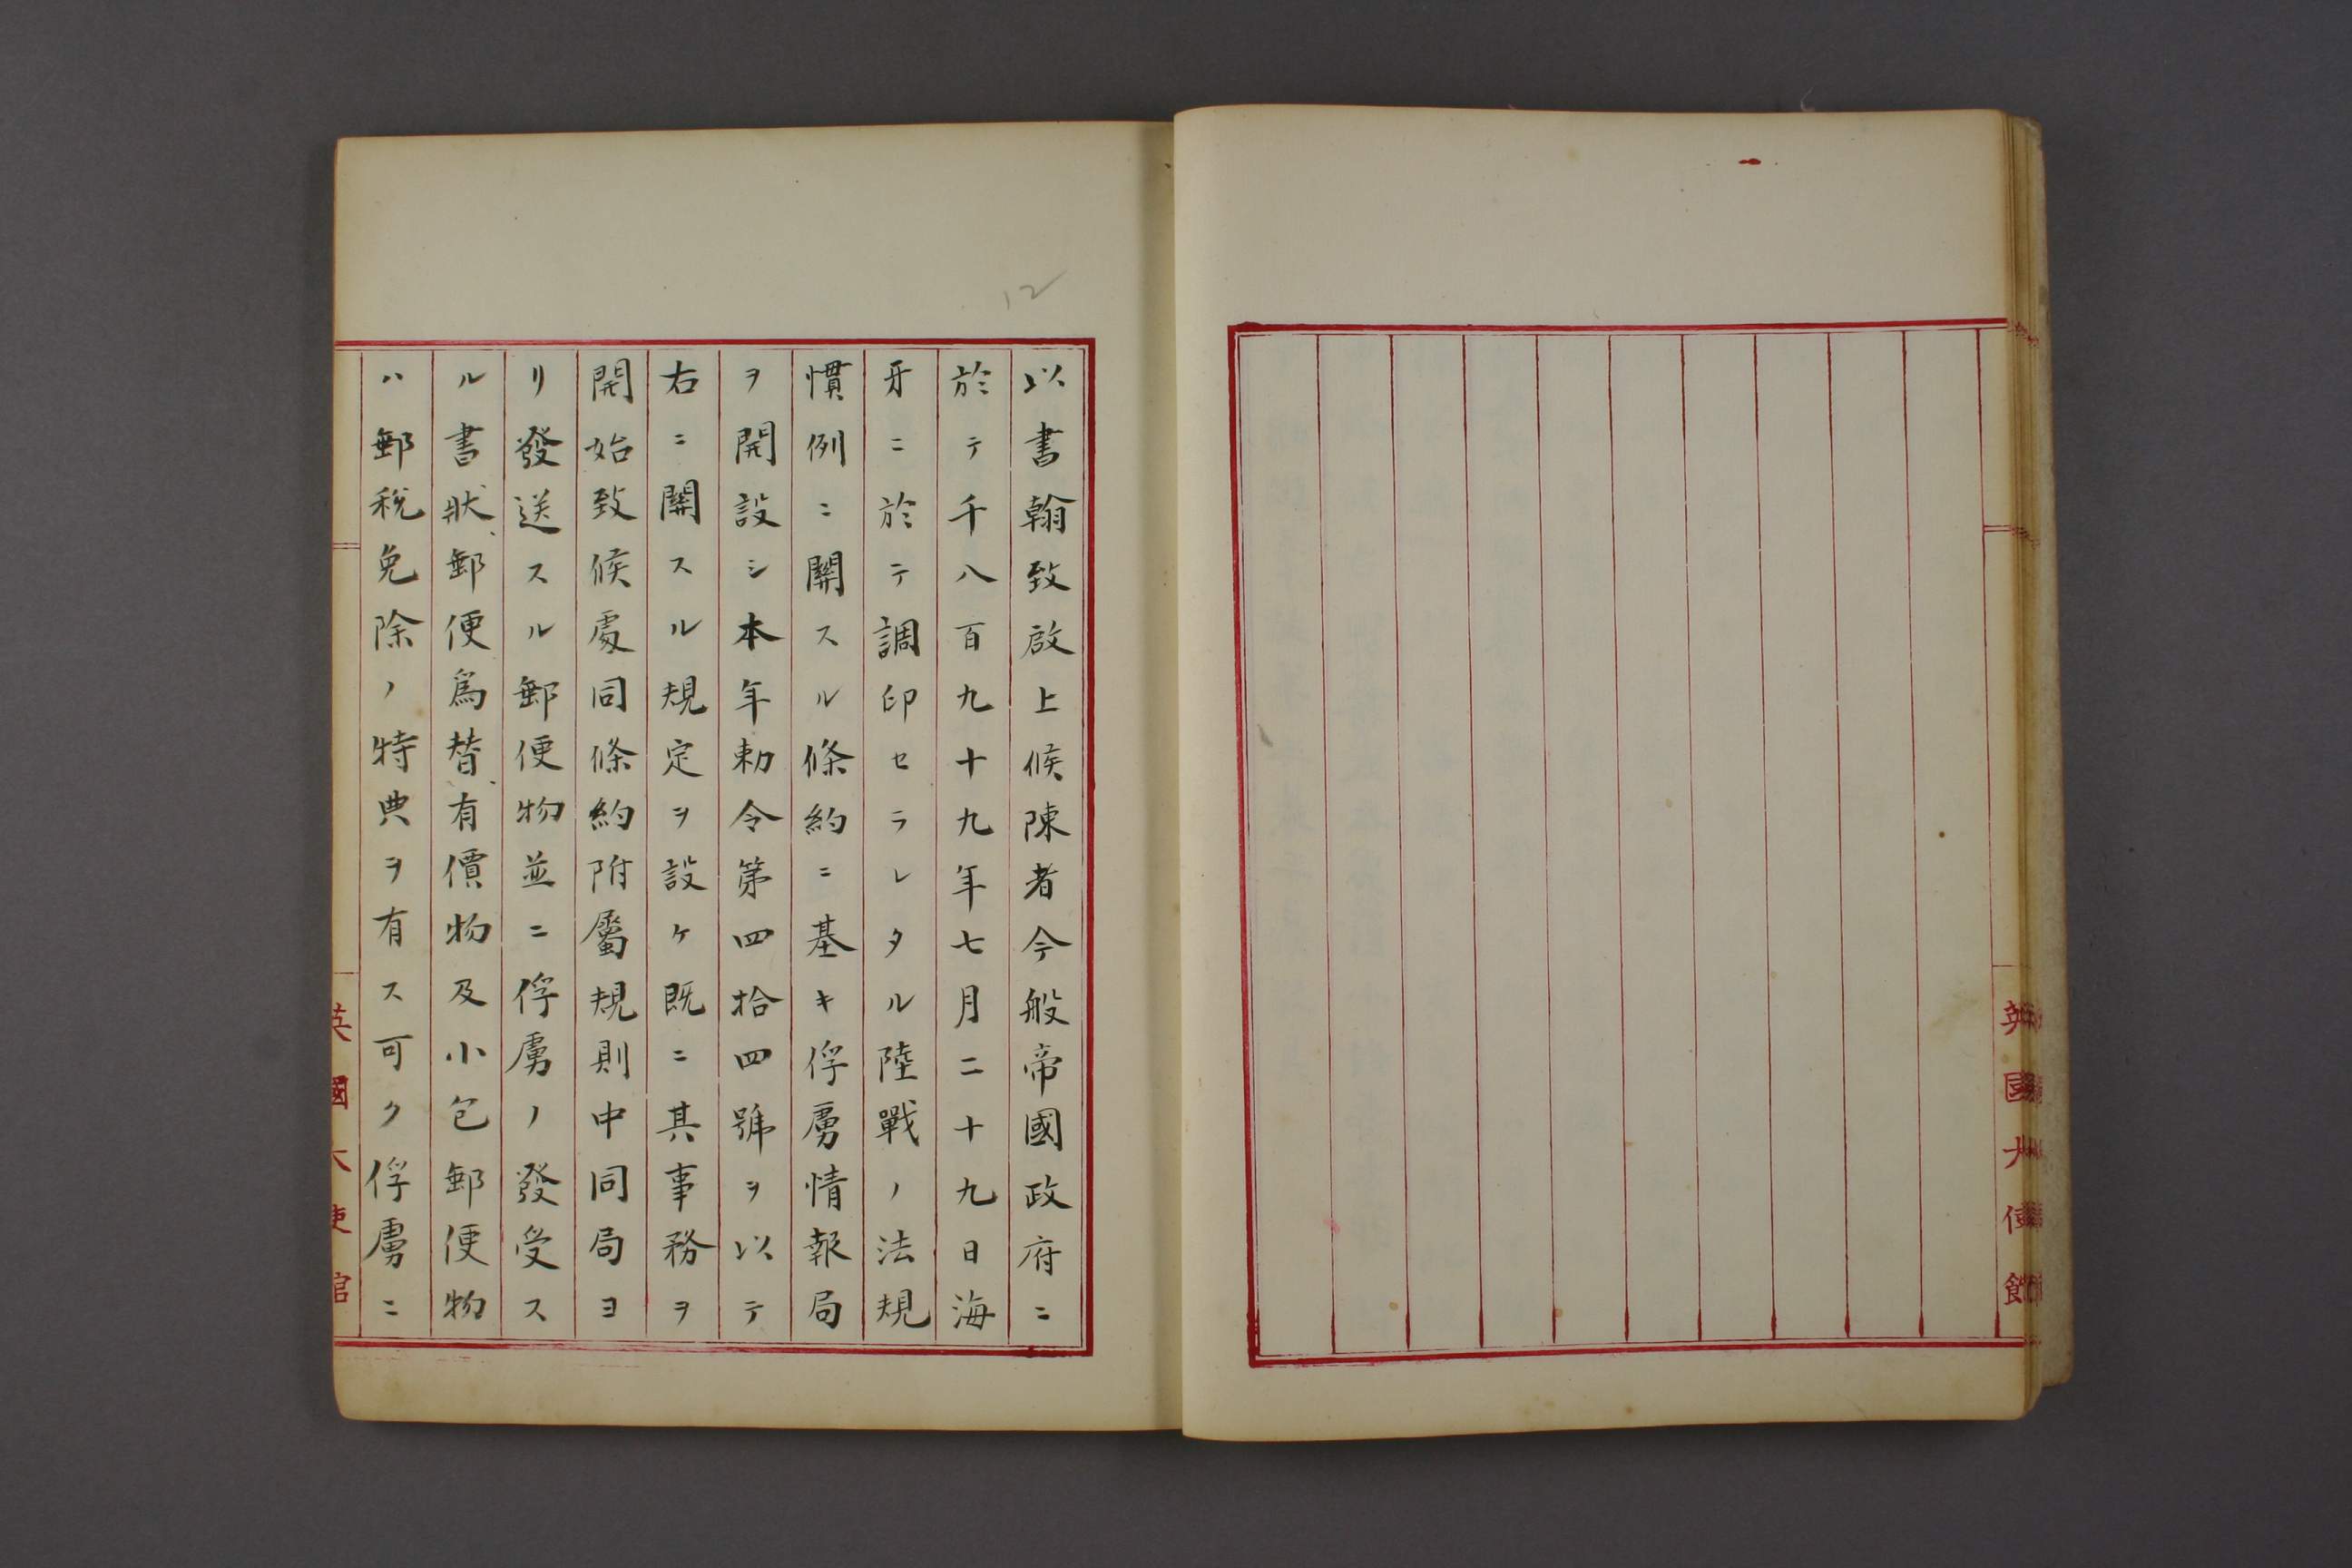 英國大使館
12
以書翰致啟上候陳者今般帝國政府ニ
於テ千八百九十九年七月二十九日海
牙ニ於テ調印セラレタル陸戰ノ法規
慣例ニ關スル條約ニ基キ俘虜情報局
ヲ開設シ本年勅令第四拾四號ヲ以テ
右ニ關スル規定ヲ設ケ既ニ其事務ヲ
開始致候處同條約附屬規則中同局ヨ
リ發送スル郵便物並ニ俘虜ノ發受ス
ル書狀、郵便爲替、有價物及小包郵便物
ハ郵稅免除ノ特典ヲ有ス可ク俘虜ニ
英國大使館